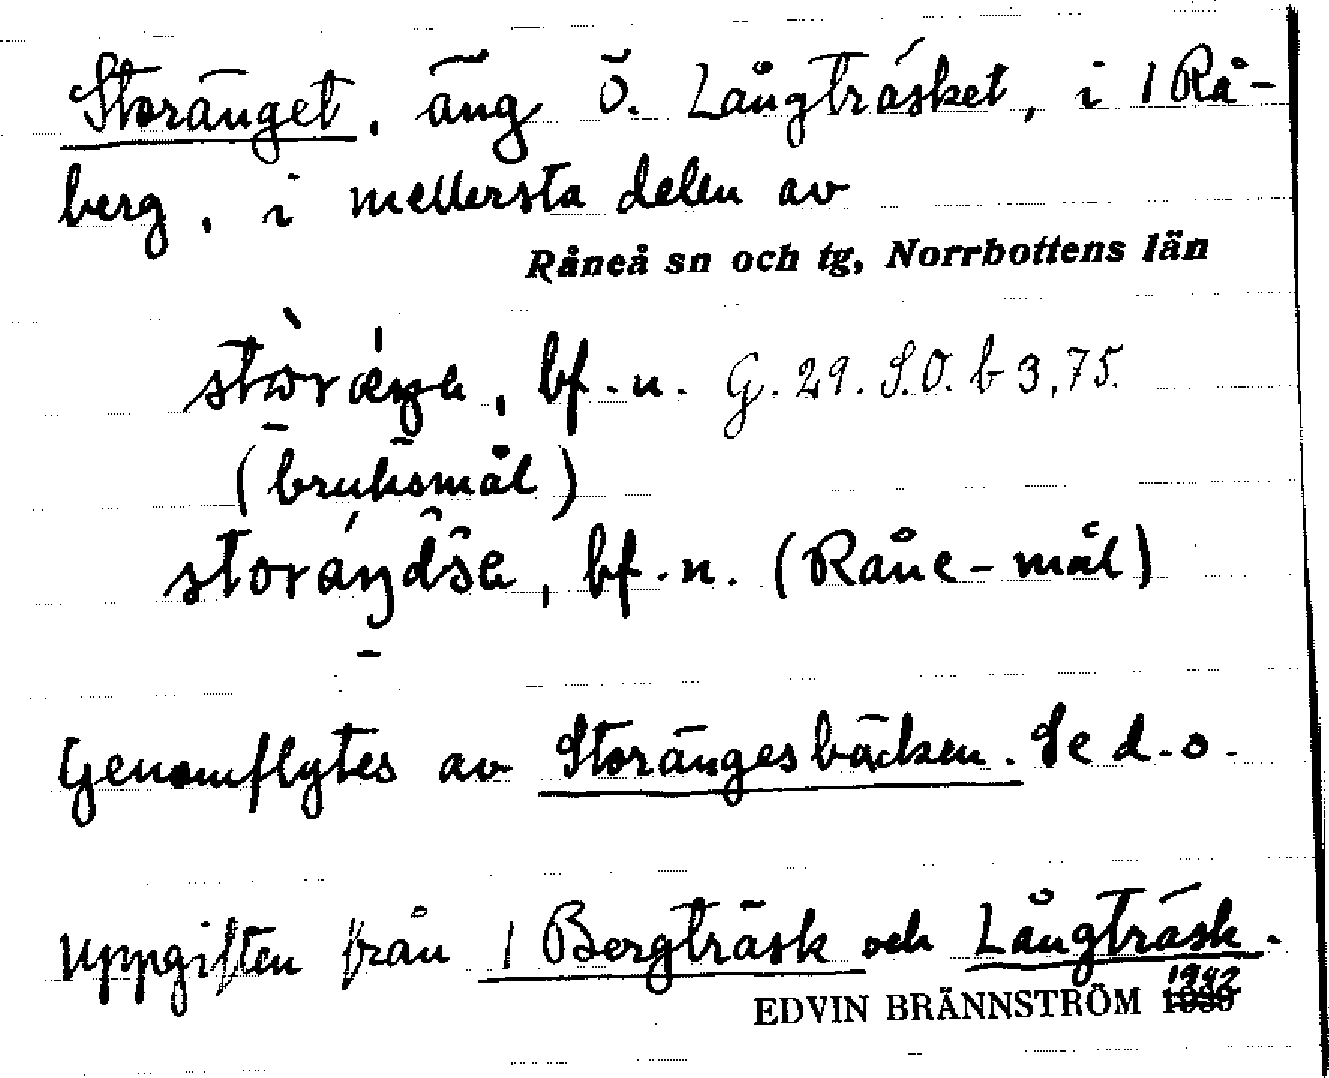 Storänget, äng Ö. Långträsket, i 1 Rå-
berg, i mellersta delen av
Råneå sn och tg, Norrbottens län
bf. n. G. 29. S.O. b 3,75.
(bruksmål)
bf. n. (Råne-mål)
Genomflytes av Storängesbäcken. Se d.o.
Uppgiften från 1 Bergträsk och Långträsk.
EDVIN BRÄNNSTRÖM 1942